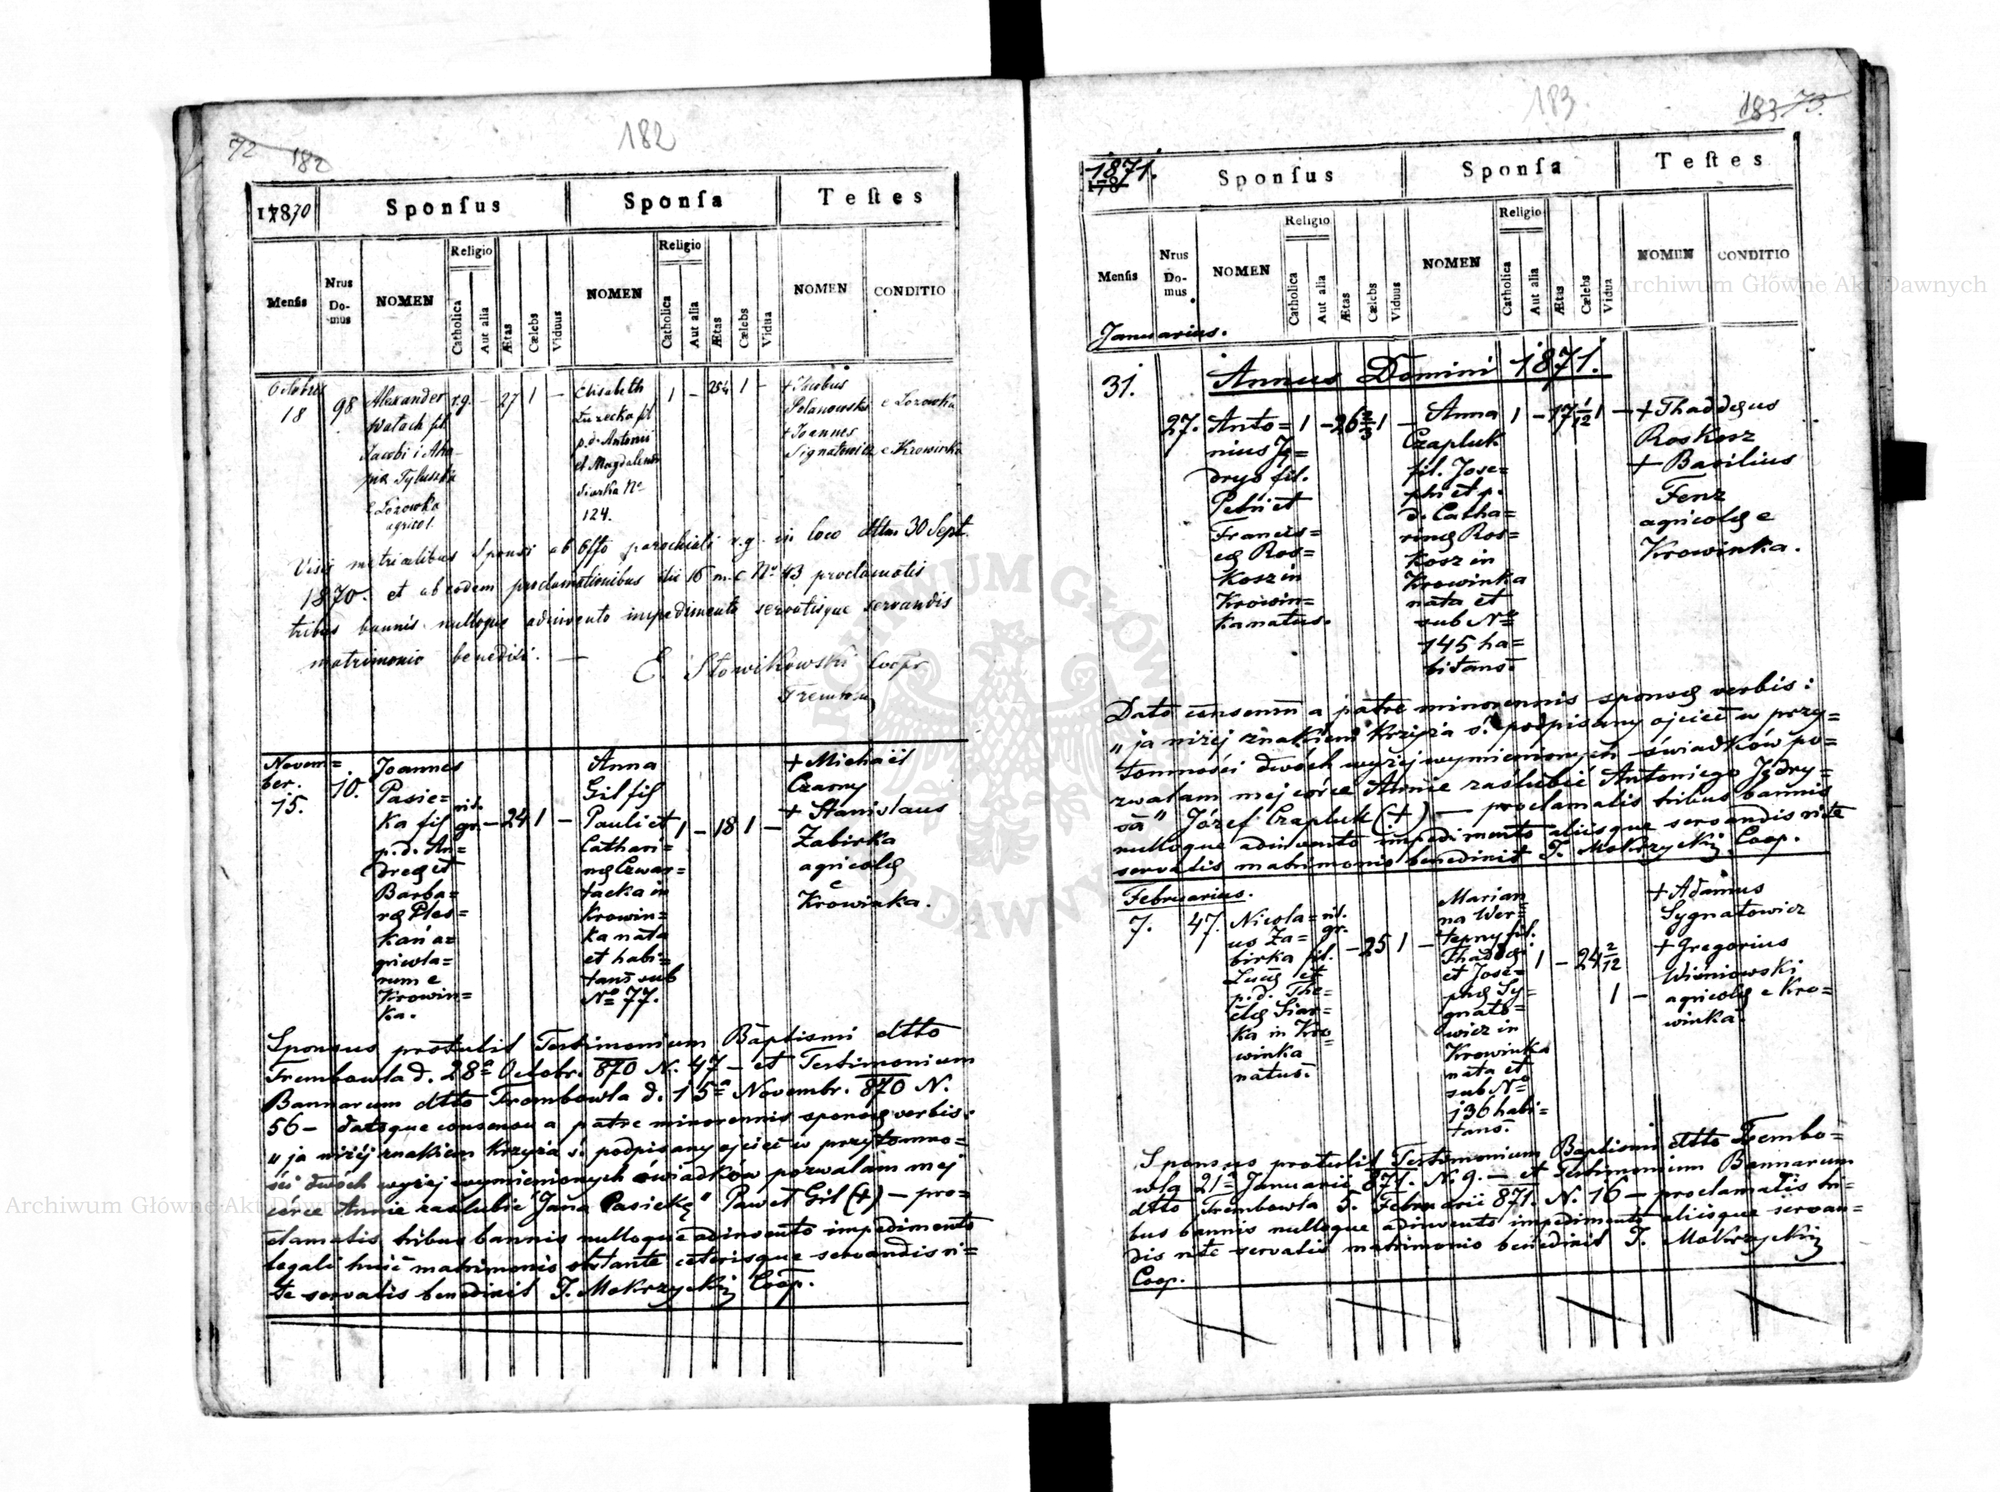 72 182
182
1870
Sponſus
Sponſa
Teſtes
Menſis
Nrus Domus
NOMEN
Religio
Catholica
Aut alia
Ætas
Cælebs
Viduus
NOMEN
Religio
Catholica
Aut alia
Ætas
Cælebs
Vidua
NOMEN
CONDITIO
Octobris
18
98
Alexander
fil
Jacobi i
e Łozowka
agricol.
r.g. — 27 1 —
Elisabeth
fil
p.d. Antonii
et Magdalena
Siarka No
124.
1 — 1 —
+ Jacobus
+ Joannes
Signatowicz
e Łozowka
e Krowinka
Visis Sponsi ab Offo parochiali r.g. in loco ddto 30 Sept.
1870. et ab eodem proclamationibus No 43 proclamatis
tribus bannis nulloque adinvento impedimento servatisque servandis
matrimonio benedixi. —
E. Słowikowski Coopr
Novem=
ber.
15.
10.
Joannes
Pasie=
ka fil
p.d. An=
dreæ et
Barba=
ræ Ples=
kań a=
gricola=
rum e
Krowin=
ka.
rit.
gr. — 24 1 —
Anna
Gil fil
Pauli et
Cathari=
næ Czwar=
tacka in
Krowin=
ka nata
et habi=
tans sub
No 77.
1 — 18 1 —
+ Michaël
Czarny
+ Stanislaus
Zabirka
agricolæ
e
Krowinka.
Sponsus protulit Testimonium Baptismi ddto
Trembowla d. 28a Octobr. 870 N. 47 — et Testimonium
Bannarum ddto Trembowla d. 15a Novembr. 870 N.
56 — datoque consensu a patre minorennis sponsæ verbis:
„ ja niżéj znakiem krzyża ś. podpisany ojciec w przytomno=
ści dwóch wyżéj wymienionych świadków pozwalam mej
córce Annie zaślubić Jana Pasiekę" Paweł Gil (+) — pro=
clamatis tribus bannis nulloque adinvento impedimento
legali huic matrimonio obstante ceterisque servandis ri=
te servatis benedixit T. Mokrzycki Coop.
183
183 73.
1871.
178
Sponſus
Sponſa
Teſtes
Menſis
Nrus Domus
NOMEN
Religio
Catholica
Aut alia
Ætas
Cælebs
Viduus
NOMEN
Religio
Catholica
Aut alia
Ætas
Cælebs
Vidua
NOMEN
CONDITIO
Januarius.
Annus Domini 1871.
31.
27.
Anto=
nius Ję=
drys fil.
Petri et
Francis=
cæ Ros=
kosz in
Krowin=
ka natus.
1 — 26 2/3 1 —
Anna
Czapluk
fil. Jose=
phi et p.
d. Catha=
rinæ Ros=
kosz in
Krowinka
nata et
sub No
145 ha=
bitans.
1 — 17 1/12 1 —
+ Thaddæus
Roskosz
+ Basilius
Fenz
agricolæ e
Krowinka.
Dato consensu a patre minorennis sponsæ verbis:
„ ja niżéj znakiem krzyża ś. podpisany ojciec w przy=
tomności dwóch wyżéj wymienionych świadków po=
zwalam mej córce Annie zaślubić Antoniego Jędry=
sa" Józef Czapluk (+) — proclamatis tribus bannis
nulloque adinvento impedimento aliisque servandis rite
servatis matrimonio benedixit T. Mokrzycki Coop.
Februarius.
7.
47.
Nicola=
us Za=
birka fil.
Lucæ et
p.d. The=
clæ Siar=
ka in Kro=
winka
natus.
rit.
gr.
— 25 1 —
Marian=
na Wer=
tepny fil.
Thaddæi
et Jose=
phæ Sy=
gnato=
wicz in
Krowinka
nata et
sub No
136 habi=
tans.
1 — 24 2/12
1 —
+ Adamus
Sygnatowicz
+ Gregorius
Wiśniowski
agricolæ e Kro=
winka.
Sponsus protulit Testimonium Baptismi ddto Trembo=
wla 21a Januarii 871. N. 9. — et Testimonium Bannarum
ddto Trembowla 5. Februarii 871. N. 16 — proclamatis tri=
bus bannis nulloque adinvento impedimento aliisque servan=
dis rite servatis matrimonio benedixit T. Mokrzycki
Coop.
Archiwum Główne Akt Dawnych
Archiwum Główne Akt Dawnych
ARCHIWUM GŁÓWNE
AKT DAWNYCH